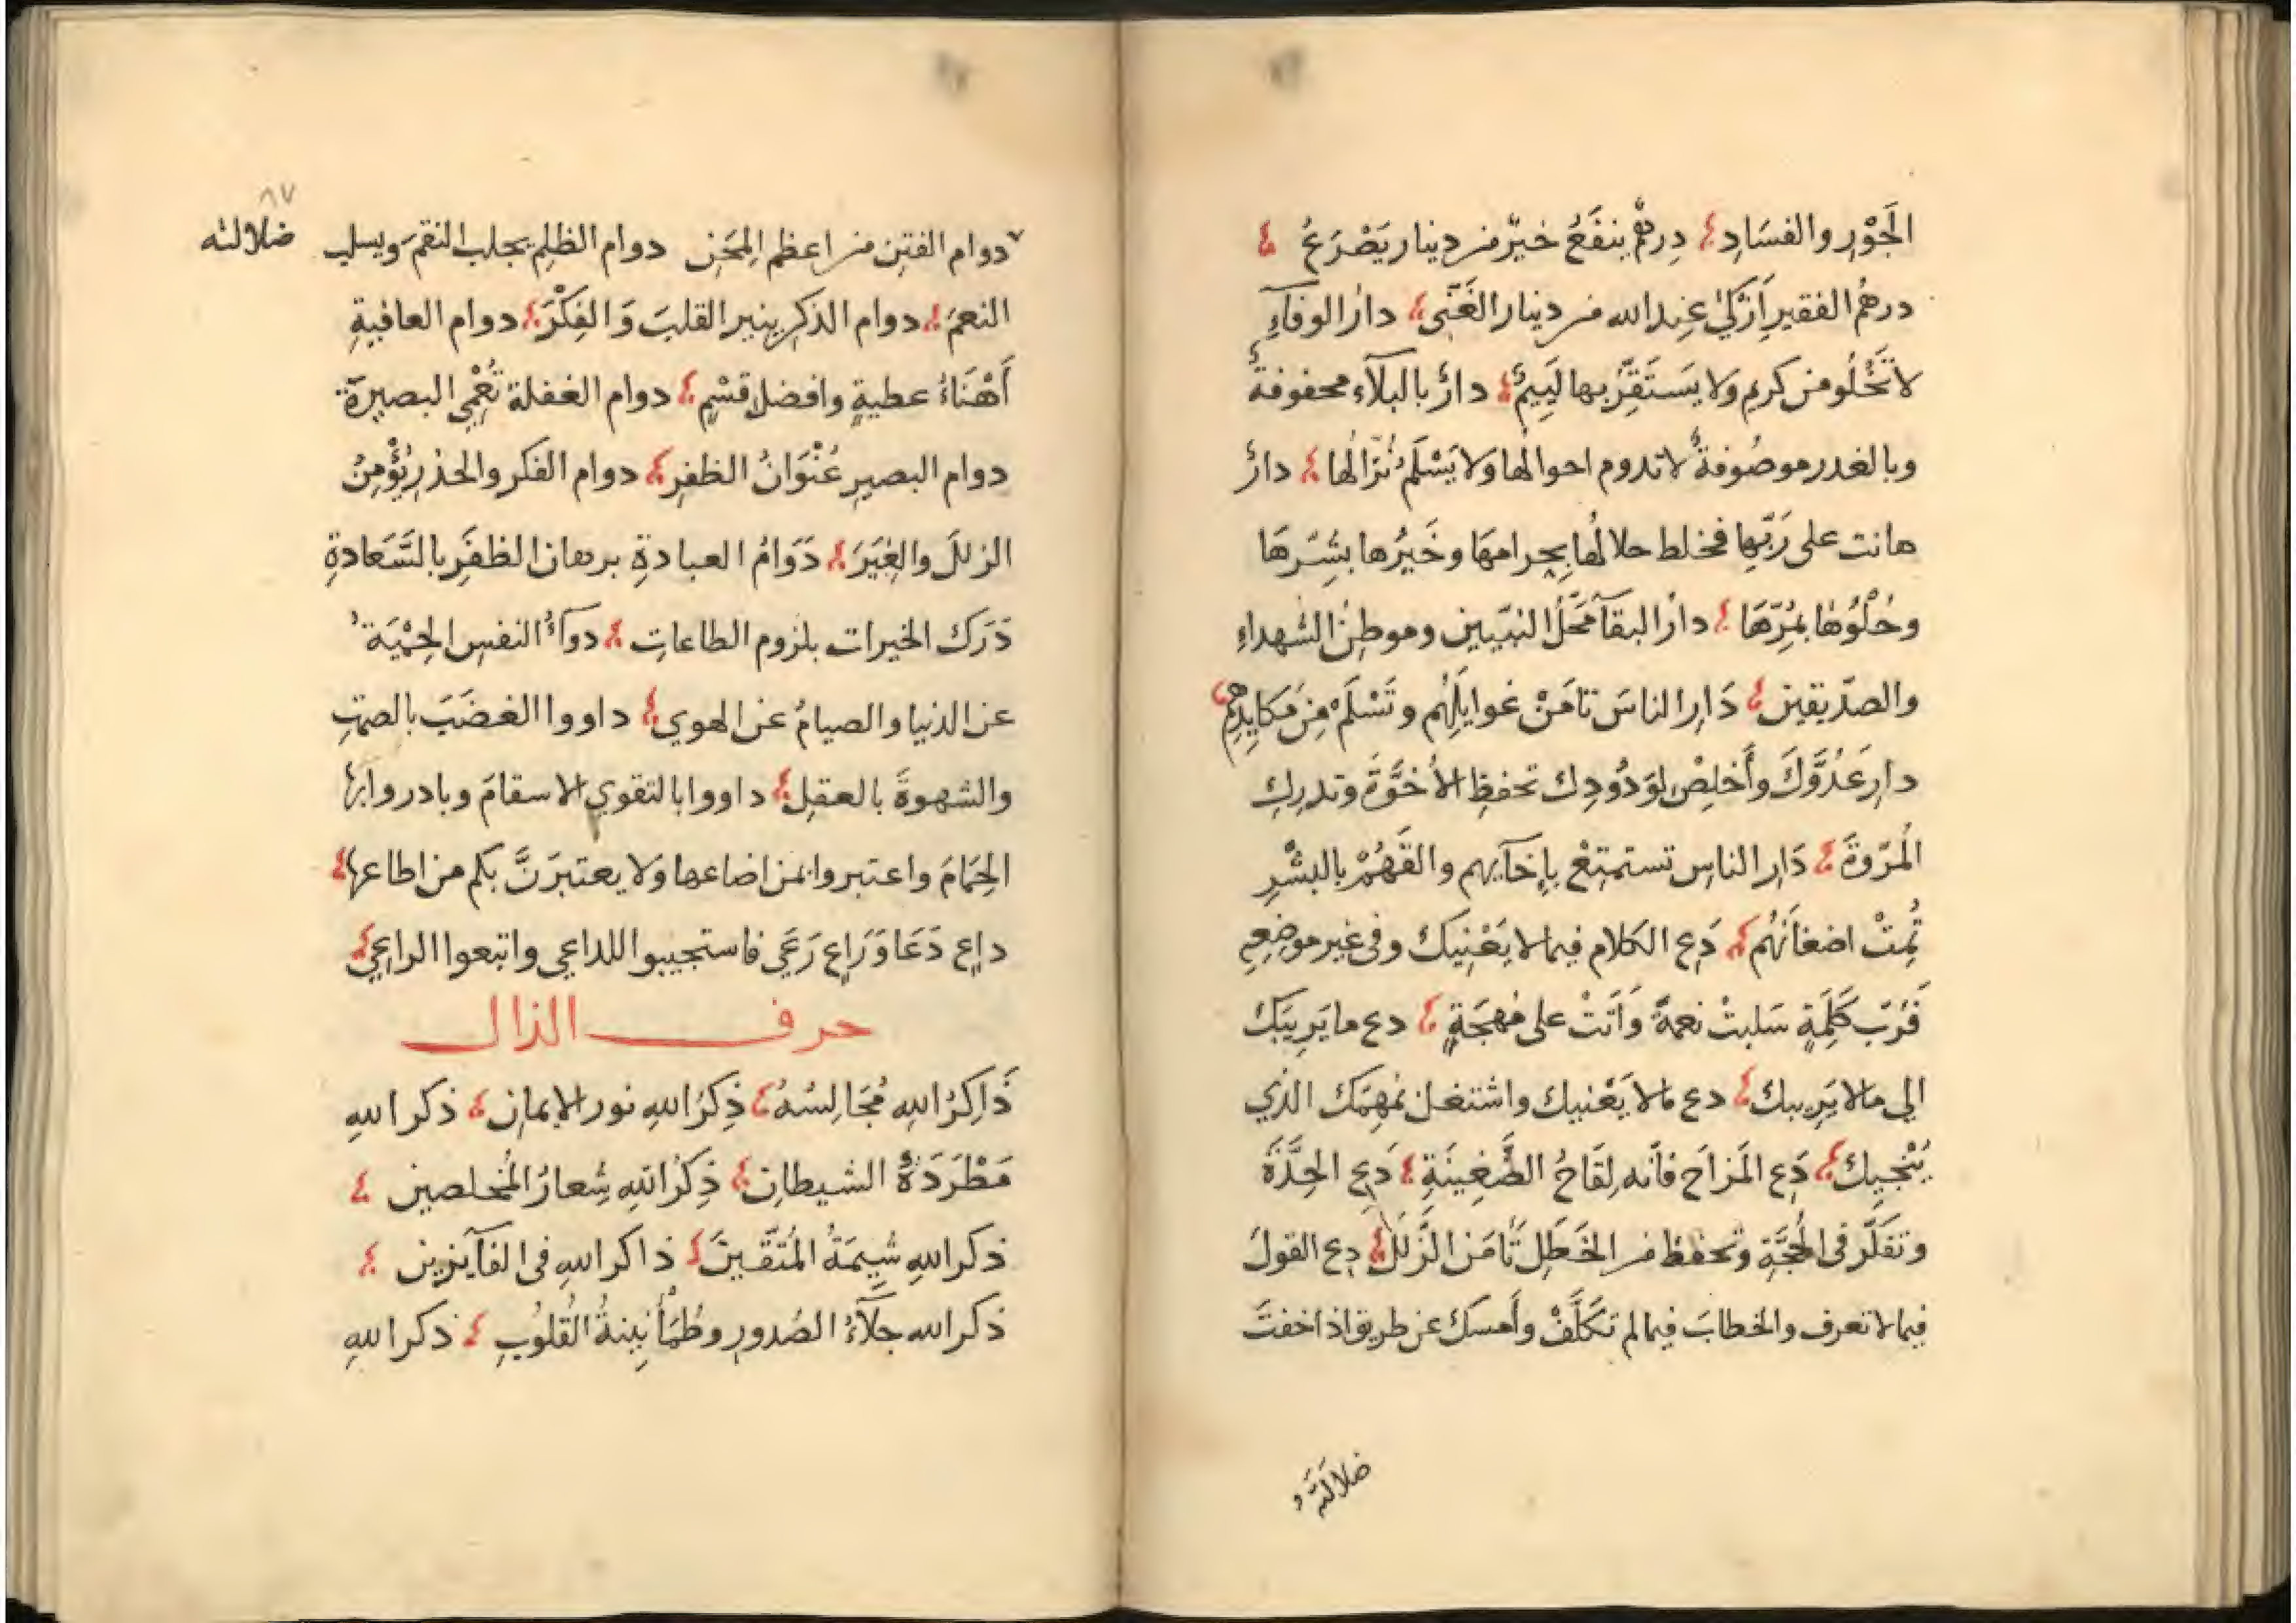 الجَوْرِ والفسَادِ دِرهمٌ ينفَعُ خيرٌ من دينار يَصْرَعُ
درهمُ الفقيرِ اَزْكىٰ عِندالله من دينار الغَنّى دارُ الوفآءِ
لا تَخْلُو من كريمٍ ولا يَستَقِرّ بها لَئِيمٌ دارٌ بالبلآء محفوفةٌ
وبالغدر موصُوفةٌ لا تدوم احوالُها ولا يَسْلَمُ نُزّالُها دارٌ
هانت على رَبّها فخلط حلالُها بِحرامهَا وخَيرُها بشِرّهَا
وحُلْوُهَا بمُرّهَا دارُ البقآ محَلُّ النبيّين وموطِنُ الشهداءِ
والصدّيقين دَارِ الناسَ تامَنْ غوايِلَهُم وتَسْلَمْ مِن مَكايِدِهِم
دارِ عَدُوَّكَ وأَخلِصْ لِوَدُودِك تحفظِ الأخوَّةَ وتدرِكِ
المُرّوةَ دَارِ الناس تستمتِعْ بإخآيهم والقَهُمْ بالبِشْرِ
تُمِتْ اضغانَهُم دَعِ الكلام فيما لا يَعْنِيك وفى غير موضِعِهِ
فَرُبّ كَلِمَةٍ سَلبتْ نعمةً وَاَتَتْ على مُهجَةٍ دع ما يَرِيبَك
الى مالا يَرِيبك دع مالا يَعْنيك واشتغل بمُهِمّك الذي
يُنْجِيك دَعِ المَزاحَ فانّه لِقَاحُ الضَّغِينَةِ دَعِ الحِدَّةَ
وتفكّر فى الحُجَّةِ وتحفظ من الخَطَلِ تَأمَن الزَّلَلَ دع القولَ
فيما لا تعرف والخطابَ فيما لم تكَلَّفْ وأمسك عن طريق اذا خفتَ
ضلالَتَهُ
٨٧
ضلالته
دوام الفتَن من اعظم المِحَن دوام الظلم يجلب النقمَ ويسلب
النعمَ دوام الذكر ينير القلبَ وَالفِكْرَ دوام العافيةِ
أَهْنَاءُ عطيةٍ وافضل قِسْمٍ دوام الغفلة تُعْمِي البصيرةَ
دوام البصيرِ عُنْوَانُ الظفرِ دوام الفكر والحذرِ يُؤْمِنُ
الزللَ والغِيَرَ دَوَامُ العبادةِ برهان الظفَرِ بالسَّعَادةِ
دَرَك الخيرات بلزوم الطاعاتِ دوآءُ النفس الحِمْيَةُ
عن الدنيا والصيامُ عن الهوي داووا الغضَبَ بالصمتِ
والشهوةَ بالعقل داووا بالتقوي الاسقامَ وبادروا بها
الحِمَامَ واعتبروا بمن اضاعها ولا يعتبرَنَّ بكم من اطاعها
داعٍ دَعَا وَرَاعٍ رَعَي فاستجيبوا للداعي واتبعوا الراعِي
حرف الذال
ذَاكِرُ اللهِ مُجَالِسُهُ ذِكرُ اللهِ نور الايمان ذكر اللهِ
مَطْرَدَةُ الشيطانِ ذِكرُ اللهِ شِعارُ المُخلصين
ذكر اللهِ شِيمَةُ المُتَّقينَ ذاكر اللهِ فى الفآيزين
ذكر الله جلآءُ الصُدورِ وطُمَأنِينةُ القُلوُبِ ذكر اللهِ